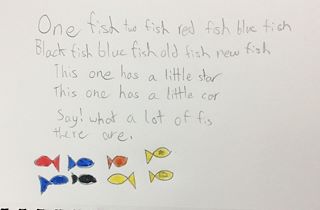 One fish two fish red fish blue fish
Black fish blue fish old fish new fish
This one has a little star
This one has a little car
Say! what a lot of fis
there are.